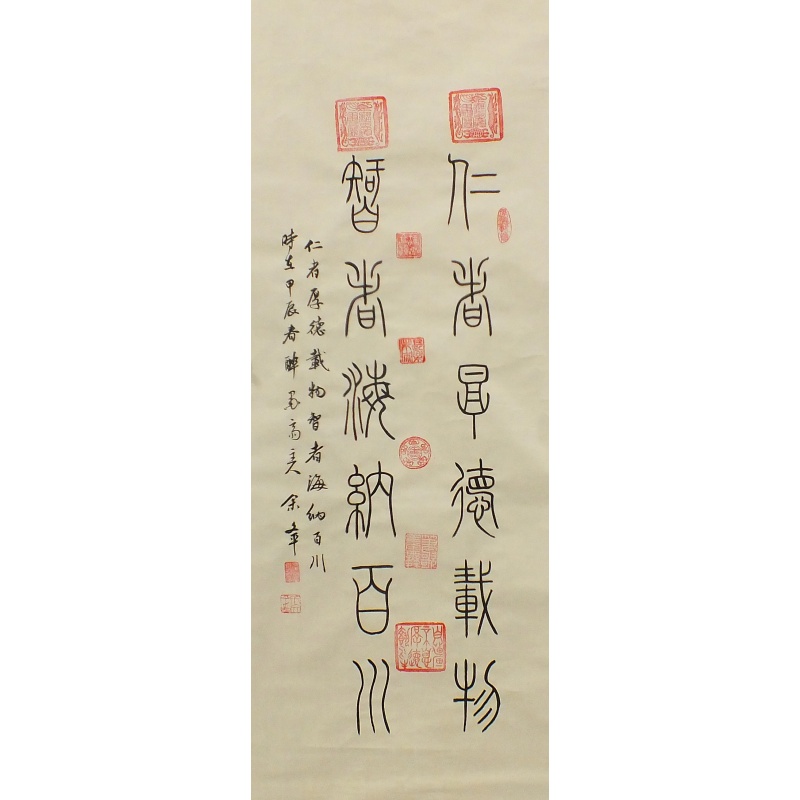 仁者厚德載物
智者海納百川
仁者厚德載物智者海納百川
時在甲辰春醉墨斋主人余華